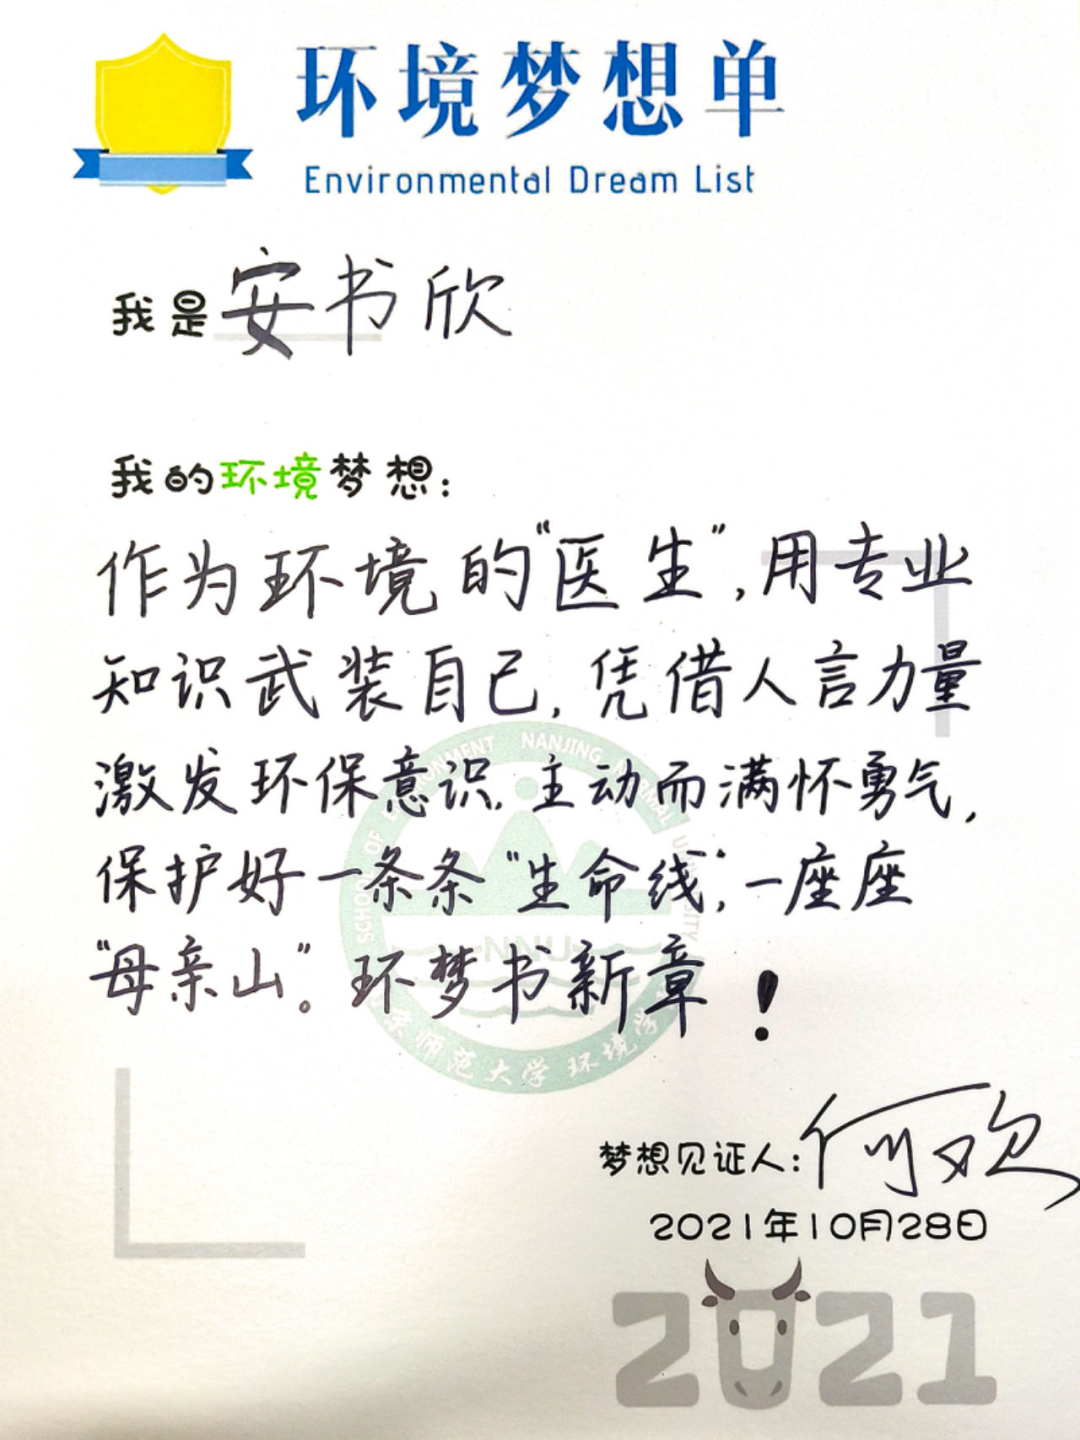 环境梦想单
Environmental Dream List
我是安书欣
我的环境梦想:
作为环境的“医生”,用专业
知识武装自己,凭借人言力量
激发环保意识,主动而满怀勇气,
保护好一条条“生命线”,一座座
“母亲山”。环梦书新章!
SCHOOL OF ENVIRONMENT NANJING NORMAL UNIVERSITY
京师范大学环境学
梦想见证人:何欢
2021年10月28日
2021